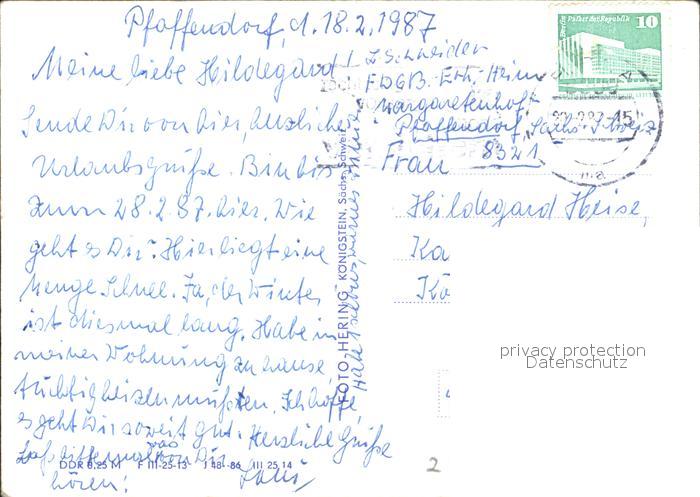 Pfaffendorf, d. 18.2.1987
Meine liebe Hildegard!
Sende Dir von hier, herzliche
Urlaubsgrüße. Bin bis
zum 28.2.87. hier. Wie
geht es Dir? Hier liegt eine
Menge Schnee. Ja, der Winter
ist diesmal lang. Habe in
meiner Wohnung zu Hause
tüchtig heizen müssen. Ich hoffe,
es geht Dir soweit gut. Herzliche Grüße
Laß bitte mal was von Dir
hören!
L. Schneider
FDGB-Erh.-Heim
"Margaretenhof"
Pfaffendorf, Sächs. Schweiz
8321
Frau
Hildegard Heise,
Ka
Kö
Berlin Palast der Republik
10
DDR
FOTO-HERING, KÖNIGSTEIN, Sächs. Schweiz
DDR 0,25 M F III-25-13 J 48-86 III 25 14
2
privacy protection
Datenschutz